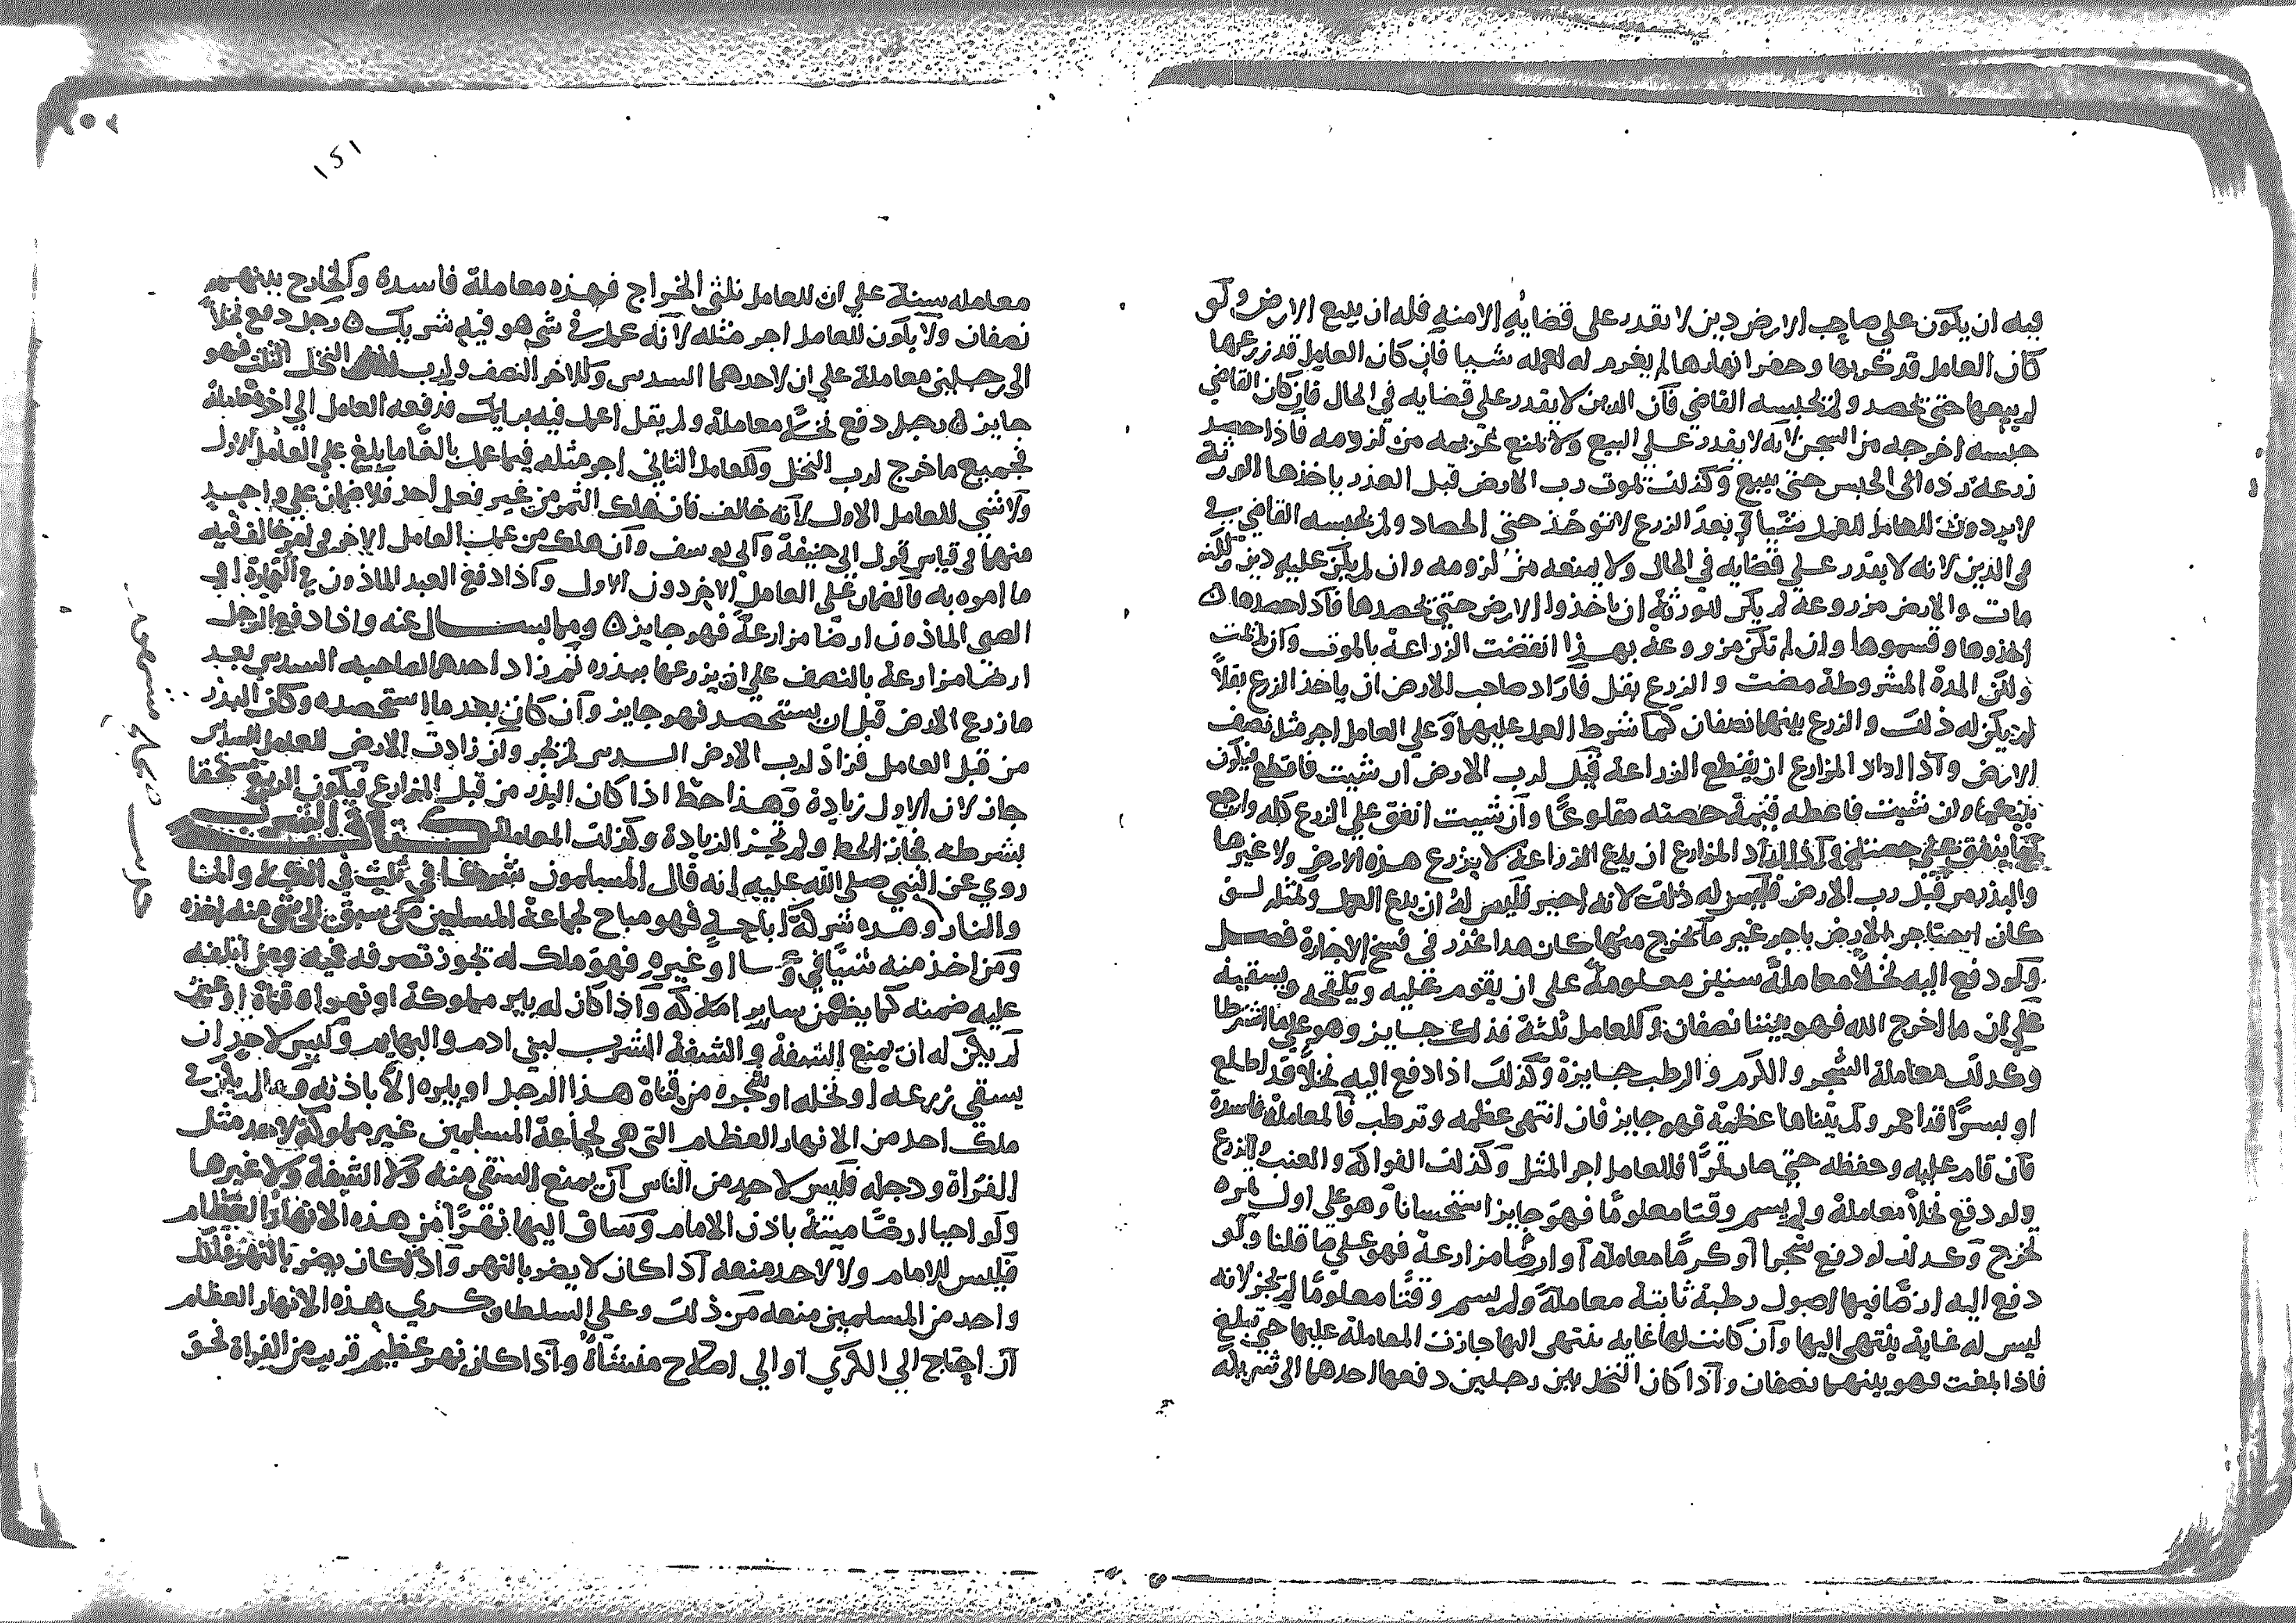 فيه ان يكون علي صاحب الارض دين لا يقدر علي قضايه الا منه فله ان يبيع الارض ولو
كان العامل قد كربها وحفر انهارها لم يغرم له لعمله شيا فان كان العامل قد زرعها
لم يبيعها حتي يحصد ولم يحبسه القاضي فان الدين لا يقدر علي قضايه في الحال فان كان القاضي
حبسه اخرجه من السجن لانه لا يقدر علي البيع ولا يمنع غريمه من لزومه فاذا حصد
زرعه رده الي الحبس حتي يبيع وكذلك بموت رب الارض قبل العذر باخذها الورثة
لا يردون للعامل للعمل شيا و بعد الزرع لا توخذ حتي الحصاد ولم يحبسه القاضي في
في الدين لانه لا يقدر علي قضايه في الحال ولا يمنعه من لزومه وان لم يكن عليه دين ولكنه
مات والارض مزروعة لم يكن للورثة ان ياخذوا الارض حتي يحصدها فاذا حصدها
اخذوها وقسموها وان لم تكن مزروعة بهذا انقضت الزراعة بالموت وان لم يمت
ولكن المدة المشروطة مضت والزرع بقل فاراد صاحب الارض ان ياخذ الزرع بقلاً
لم يكن له ذلك والزرع بينهما نصفان كما شرط العمل عليهما وعلي العامل اجر مثل نصف
الارض واذا اراد المزارع ان يقطع الزراعة قيل لرب الارض ان شيت فاقطع فيكون
بينهما وان شيت فاعطه قيمة حصته مقلوعًا وان شيت انفق علي الزرع كله وارجع
بما ينفق علي حصته واذا اراد المزارع ان يدع الزراعة لا يزرع هذه الارض ولا غيرها
والبذر من قبل رب الارض فليس له ذلك لانه اجير فليس له ان يدع العمل ولمثله لو
كان استاجر الارض باجر غير ما يخرج منها كان هذا عذر في فسخ الاجارة فصل
ولو دفع اليه نخلاً معاملة سنين معلومة علي ان يقوم عليه ويلقحه ويسقيه
علي ان ما اخرج الله فهو بيننا نصفان وللعامل ثلثة فذلك جايز وهو علي ما اشترطا
وكذلك معاملة الشجر والكرم والرطب جايزة وكذلك اذا دفع اليه نخلاً قد اطلع
او بسرًا قد احمر ولم يتناها عظمه فهو جايز فان انتهي عظمه وترطب فالمعاملة فاسدة
فان قام عليه وحفظه حتي صار تمرًا فللعامل اجر المثل وكذلك الفواكه والعنب والزرع
ولو دفع نخلاً معاملة ولم يسم وقتا معلومًا فهو جايز استحسانا وهو علي اول ثمره
تخرج وكذلك لو دفع شجرا او كرمًا معاملة او ارضًا مزارعة فهو علي ما قلنا ولو
دفع اليه ارضًا فيها اصول رطبة ثابتة معاملة ولم يسم وقتًا معلومًا لم يجز لانه
ليس له غاية ينتهي اليها وان كانت لها غايه ينتهي اليها جازت المعاملة عليها حتي تبلغ
فاذا بلغت فهو بينهما نصفان واذا كان النخل بين رجلين دفعها احدهما الي شريكه
١٥١
معامله سنة علي ان للعامل ثلثي الخراج فهذه معاملة فاسدة والخارج بينهم
نصفان ولا يكون للعامل اجر مثله لانه عمل في شي هو فيه شريك رجل دفع نخلاً
الي رجلين معاملة علي ان لاحدهما السدس وللاخر النصف ولرب النخل الثلث فهو
جايز رجل دفع نخلاً معاملة ولم يقل اعمل فيه برايك فدفعه العامل الي اخر معاملة
فجميع ما خرج لرب النخل وللعامل الثاني اجر مثله فيما عمل بالغا ما بلغ علي العامل الاول
ولا شي للعامل الاول لانه خالف فان هلك التمر من غير فعل احد فلا ضمان علي واحد
منهما في قياس قول ابي حنيفة وابي يوسف وان هلك من عمل العامل الاخر في امر خالف فيه
ما امره به فالضمان علي العامل الاخر دون الاول واذا دفع العبد الماذون في التجارة او
الصبي الماذون ارضا مزارعة فهو جايز ومما يسال عنه واذا دفع الرجل
ارضا مزارعة بالنصف علي ان يزرعها ببذره ثم زاد احدهما صاحبه السدس بعد
ما زرع الارض قبل ان يستحصد فهو جايز وان كان بعد ما استحصده وكان البذر
من قبل العامل فزاد لرب الارض السدس لم يجز وان زادت الارض للعامل السدس
جاز لان الاول زيادة وهذا حط اذا كان البذر من قبل المزارع فيكون الريع مستحقا
بشرطه فجاز الحط ولم تجز الزيادة وكذلك المعاملة كتاب الشرب
روي عن النبي صلي الله عليه انه قال المسلمون شركا في ثلث في الكلا والما
والنار وهذه شركة اباحة فهو مباح لجماعة المسلمين من سبق الي شي منه اخذه
ومن اخذ منه شيًا في وعا او غيره فهو ملك له تجوز تصرفه فيه ومن اتلفه
عليه ضمنه كما يضمن ساير املاكه واذا كان له بير مملوكة او نهر او قناة او عين
لم يكن له ان يمنع الشفة والشفة الشرب لبني ادم والبهايم وليس لاحد ان
يسقي زرعه او نخله او شجره من قناة هذا الرجل او بيره الا باذنه وما لم يكن في
ملك احد من الانهار العظام التي هي لجماعة المسلمين غير مملوكة لاحد مثل
الفراة ودجله فليس لاحد من الناس ان يمنع السقي منه ولا الشفة ولا غيرها
ولو احيا ارضًا ميتة باذن الامام وساق اليها نهرًا من هذه الانهار العظام
فليس للامام ولا لاحد منعه اذا كان لا يضر بالنهر واذا كان يضر بالنهر فلكل
واحد من المسلمين منعه من ذلك وعلي السلطان كري هذه الانهار العظام
ان احتاج الي الكري او الي اصلاح مسناة واذا كان نهر عظيم قريب من الفراة لحق